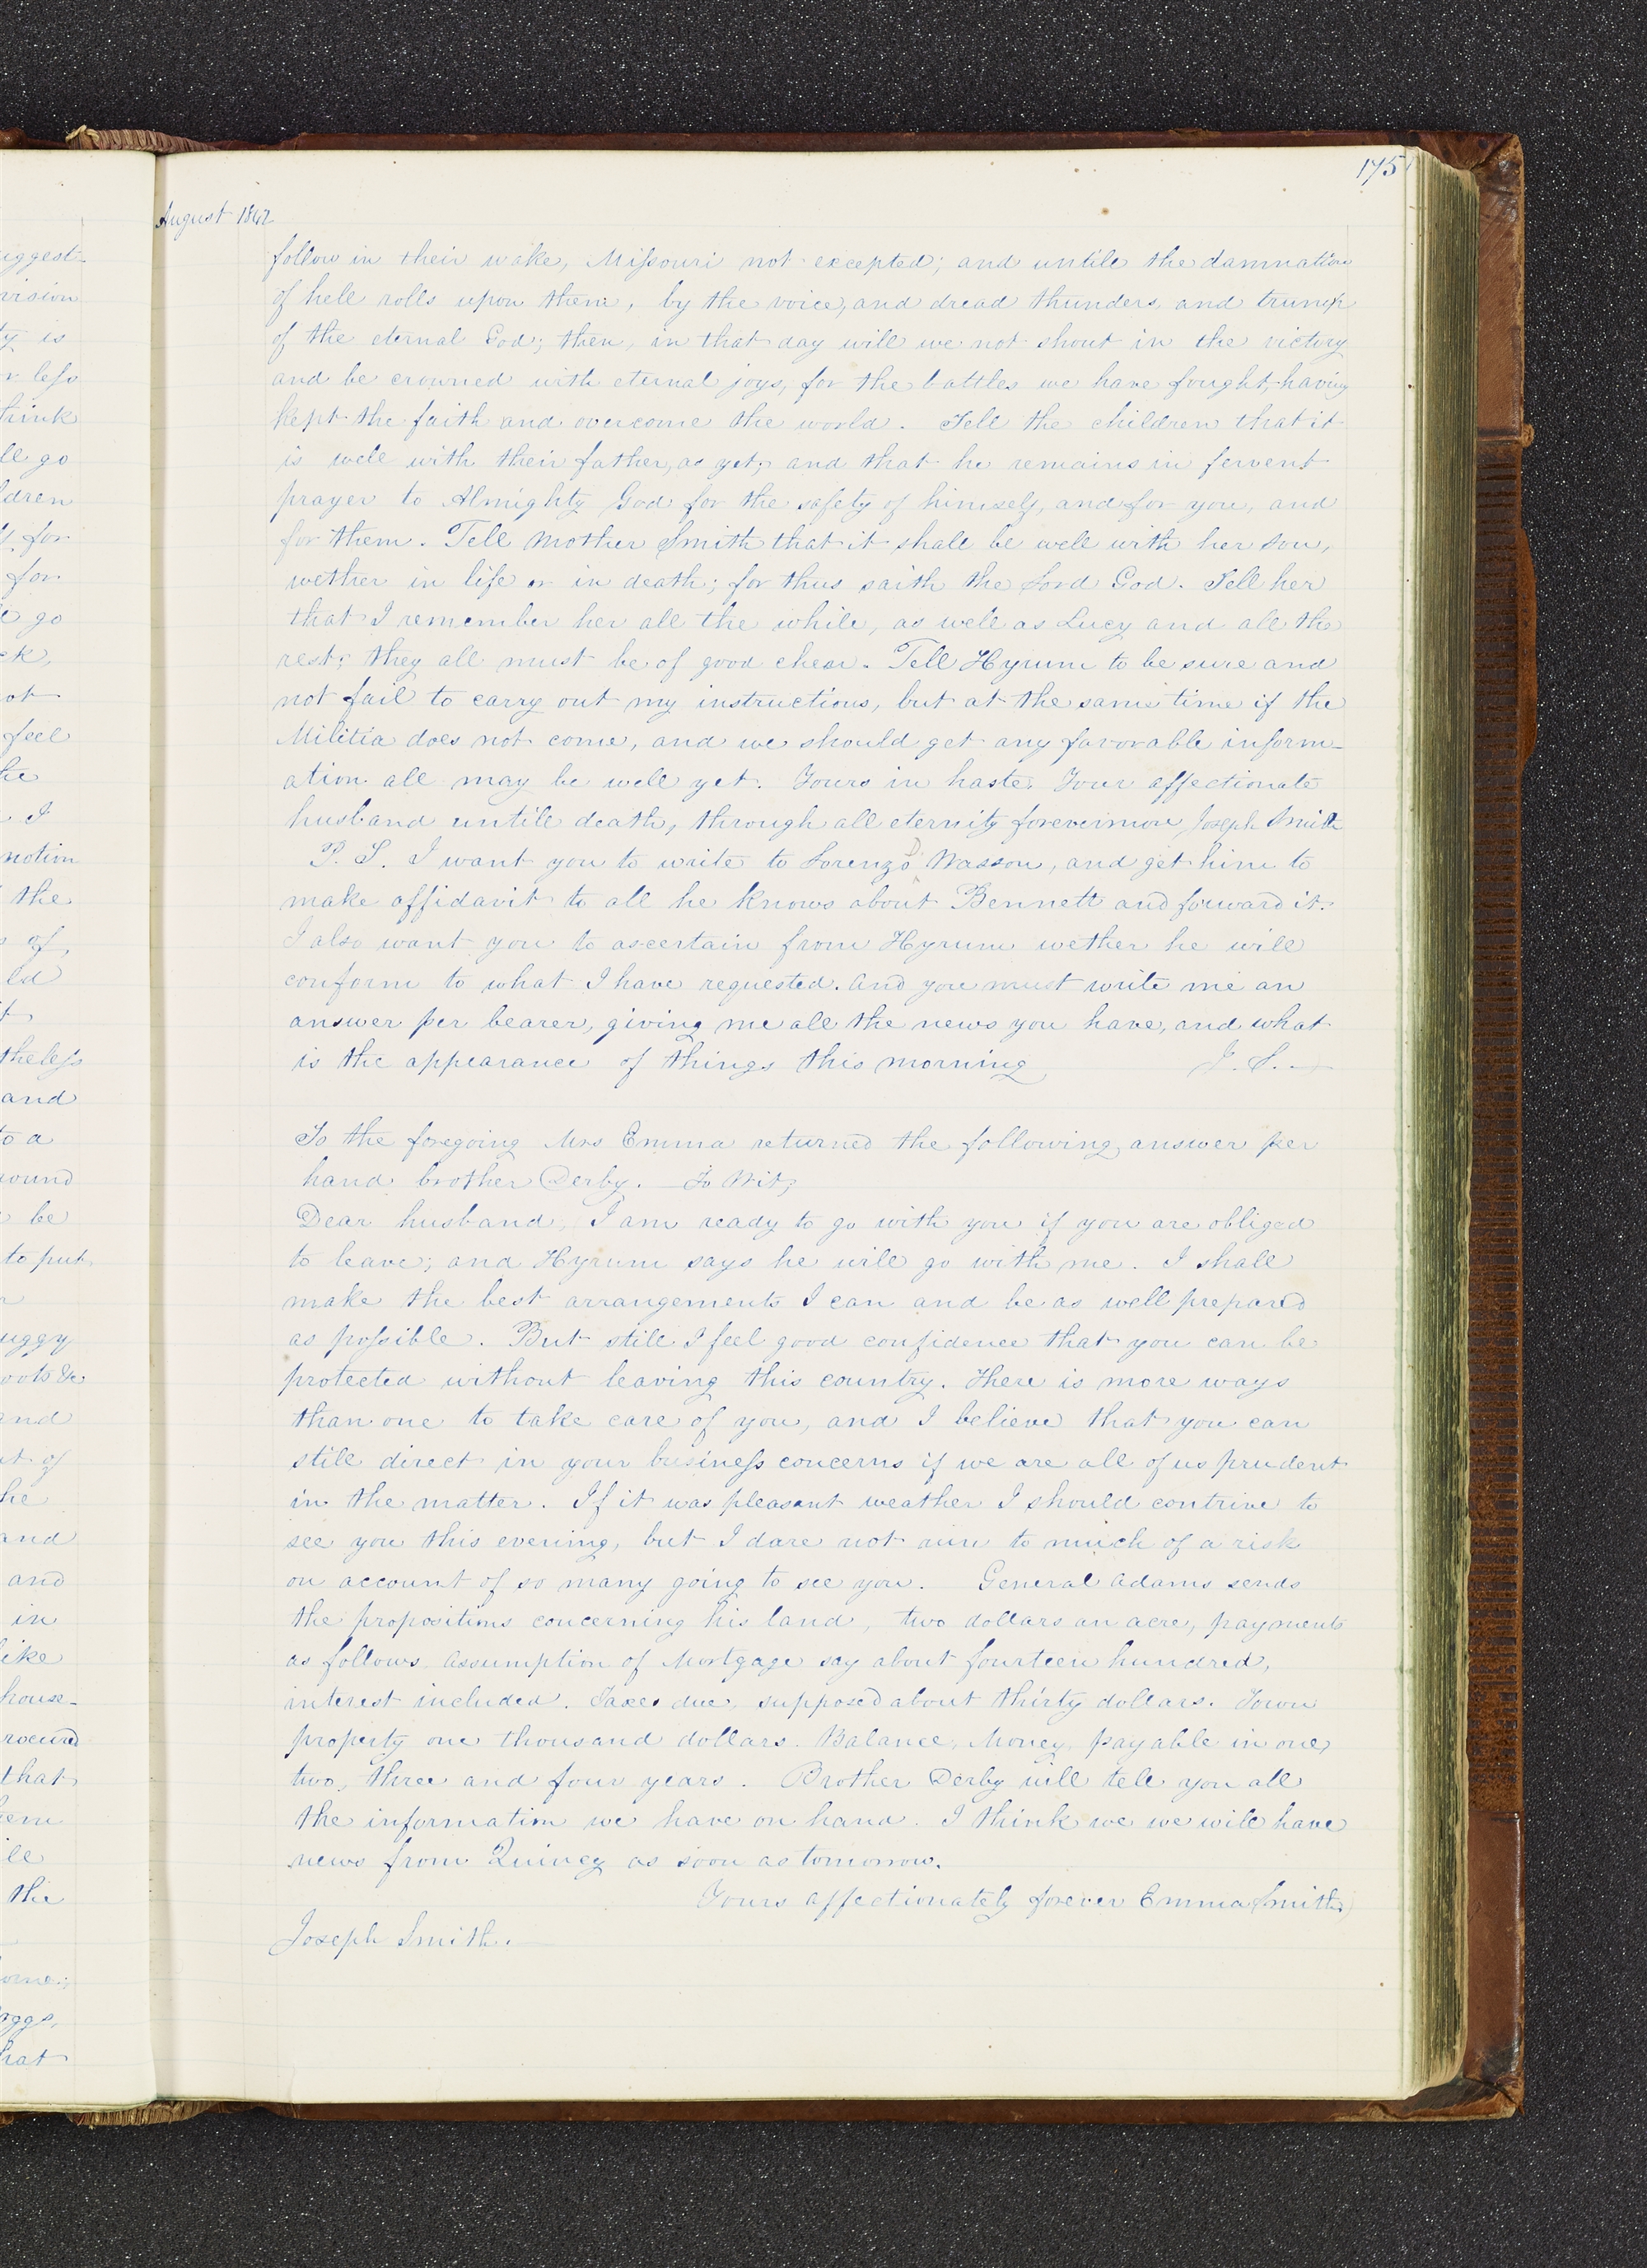 175
August 1842
follow in their wake, Missouri not excepted; and untill the damnation
of hell rolls upon them, by the voice, and dread thunders, and trump
of the eternal God; then, in that day will we not shout in the victory
and be crowned with eternal joys, for the battles we have fought, having
kept the faith and overcome the world. Tell the children that it
is well with their father, as yet; and that he remains in fervent
prayer to Almighty God for the safety of himself, and for you, and
for them. Tell Mother Smith that it shall be well with her son,
wether in life or in death; for thus saith the Lord God. Tell her
that I remember her all the while, as well as Lucy and all the
rest; they all must be of good chear. Tell Hyrum to be sure and
not fail to carry out my instructions, but at the same time if the
Militia does not come, and we should get any favorable inform-
ation all may be well yet. Yours in haste. Your affectionate
husband untill death, through all eternity forevermore Joseph Smith
P. S. I want you to write to Lorenzo D Wasson, and get him to
make affidavit to all he knows about Bennett and forward it.
I also want you to ascertain from Hyrum wether he will
conform to what I have requested. And you must write me an
answer per bearer, giving me all the news you have, and what
is the appearance of things this morning J. S. —
To the foregoing Mrs Emma returned the following answer per
hand brother Derby. To Wit;
Dear husband, I am ready to go with you if you are obliged
to leave; and Hyrum says he will go with me. I shall
make the best arrangements I can and be as well prepared
as possible. But still I feel good confidence that you can be
protected without leaving this country. There is more ways
than one to take care of you, and I believe that you can
still direct in your business concerns if we are all of us prudent
in the matter. If it was pleasant weather I should contrive to
see you this evening, but I dare not run to much of a risk
on account of so many going to see you. General Adams sends
the propositions concerning his land, two dollars an acre, payments
as follows, Assumption of Mortgage say about fourteen hundred,
interest included. Taxes due, supposed about thirty dollars. Town
property one thousand dollars. Balance, Money, payable in one,
two, three and four years. Brother Derby will tell you all
the information we have on hand. I think we we will have
news from Quincy as soon as tomorrow.
Yours affectionately forever Emma Smith
Joseph Smith.